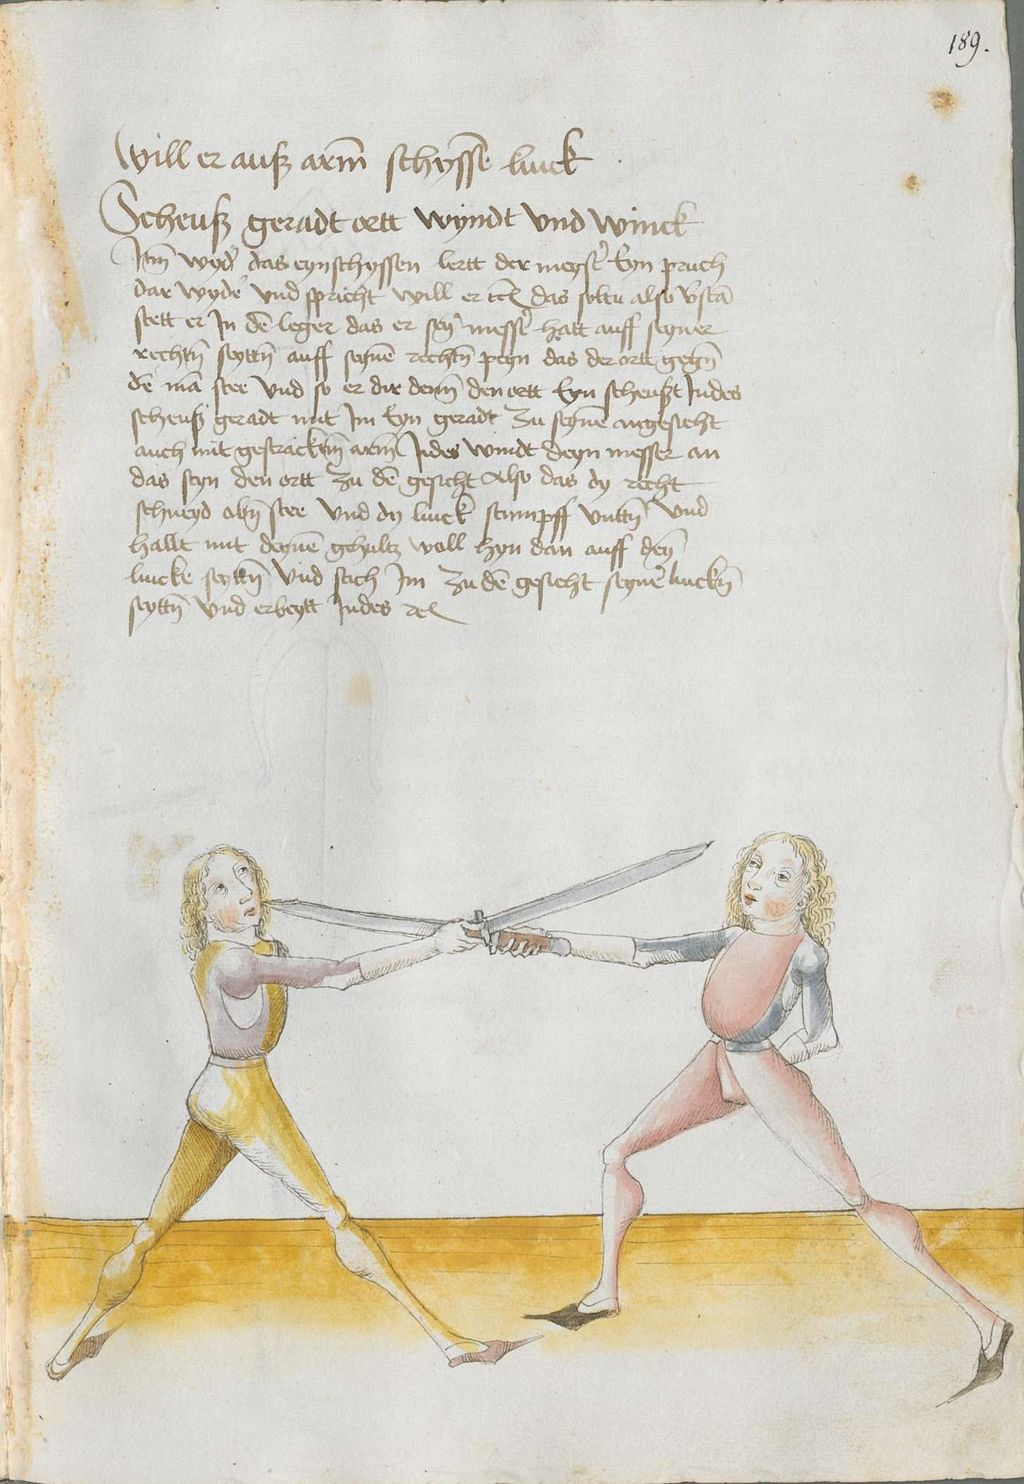 189.
Will er auß arm̄ schyssē luck
Scheuß geradt ortt wyndt vnd winck
Itm̄ wyd' das eynschyssen lertt der meyst' eyn pruch
dar wyde' vnd spricht will er das soltu also v'stā
stett er In dē leger das er sey' messe' hatt auff seyner
rechtn̄ seyttn̄ auff seynē rechtn̄ peyn das der ortt gegn̄
dē mā stee vnd so er dir denn̄ den ortt eyn scheust Indes
scheuß geradt mit Im eyn geradt zu seynē angesicht
auch mit gestracktm̄ arm̄ Indes windt deyn messer an
das seyn den ortt zu dē gesicht Also das dy recht
schneyd obn̄ stee vnd dy linck stumpff vnttn̄ vnd
hallt mit deynē gehultz woll hyn dan auff deyn̄
lincke seyttn̄ vnd stich Im zu dē gesicht seyne' linckn̄
seyttn̄ vnd erbeytt Indes